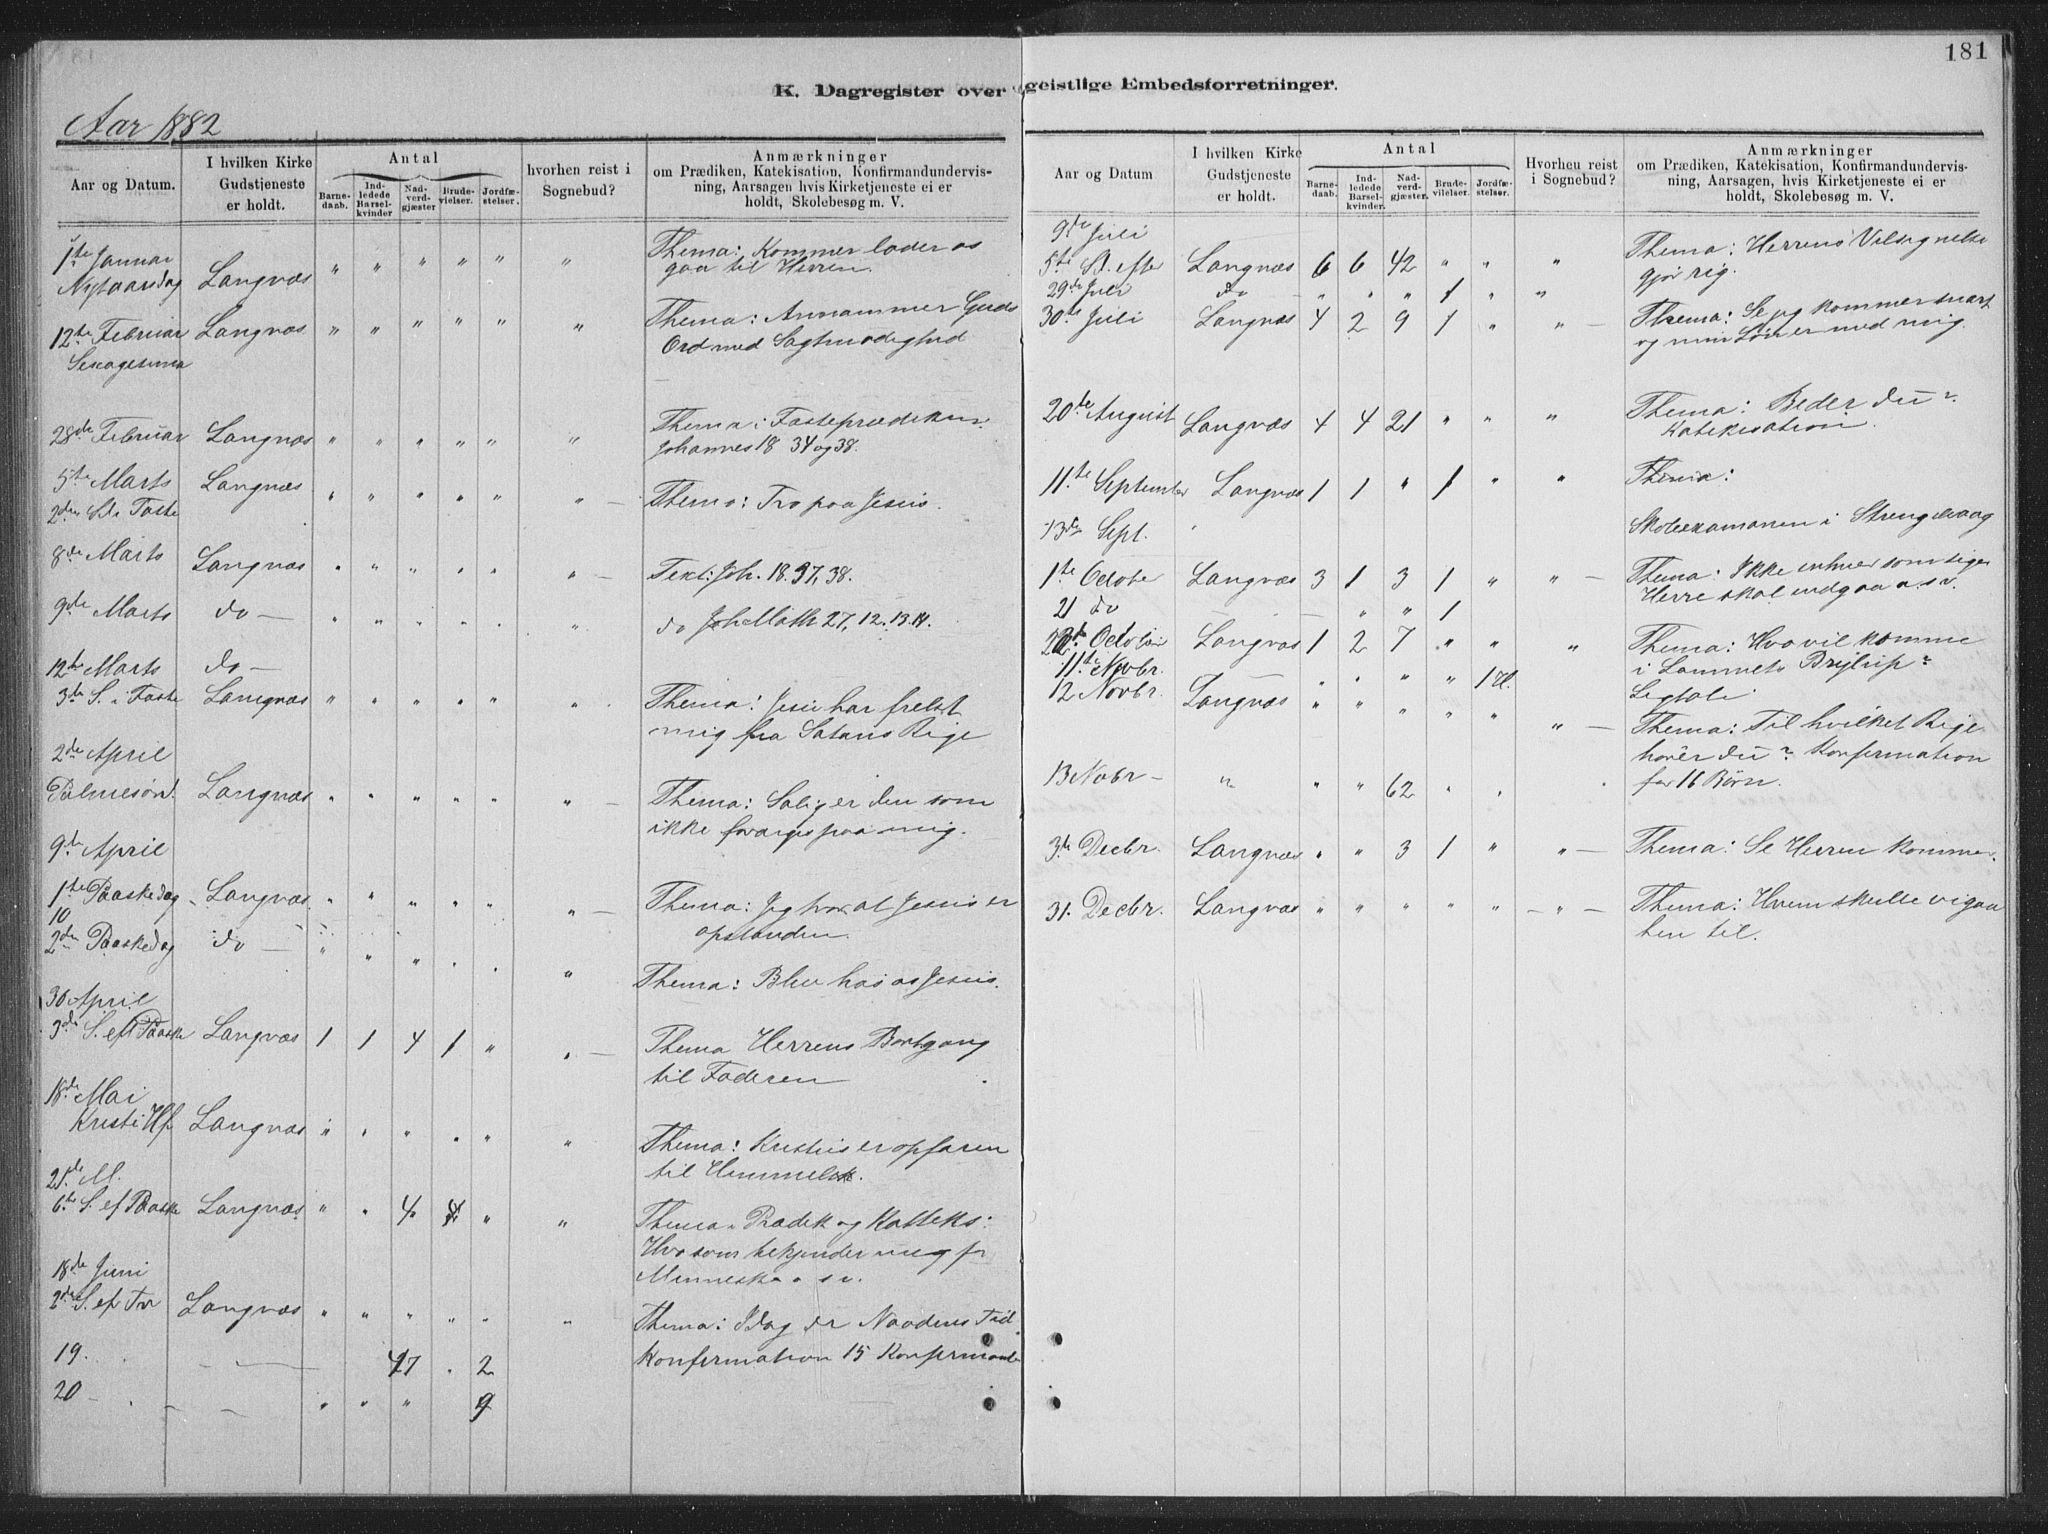 181
K. Dagregister over geistlige Embedsforretninger.
Aar 1882
Aar og Datum.
I hvilken Kirke Gudstjeneste er holdt.
Antal
Barnedaab.
Indledede Barselkvinder
Nadverdgjæster
Brudevielser.
Jordfæstelser.
hvorhen reist i Sognebud?
Anmærkninger
om Prædiken, Katekisation, Konfirmandundervisning, Aarsagen hvis Kirketjeneste ei er holdt, Skolebesøg m. V.
1ste Januar Nytaarsdag Langnæs " " " " " " Thema: Kommer lader os
gaa til Herren.
12te Februar Langnæs " " " " " " Thema: Annammer Guds
Sexagesima Ord med Sagtmodighed
28de Februar Langnæs " " " " " " Thema: Fasteprædiken.
Johannes 18 34 og 38.
5te Marts Langnæs " " " " " " — Thema: Tro paa Jesus.
2den S. i Faste
8de Marts Langnæs " " " " " " — Text: Joh. 18. 37, 38.
9de Marts do — " " " " " " do Joh Math 27, 12. 13. 14.
12te Marts do —
3die S. i Faste Langnæs " " " " " " Thema: Jesus har frelst
mig fra Satans Rige
2den April
Palmesønd. Langnæs " " " " " " — Thema: Salig er den som
ikke forarges paa mig.
9de April
1ste Paaskedag Langnæs " " " " " " — Thema: Jeg tror at Jesus er
opstanden.
10
2den Paaskedag do — " " " " " " Thema: Bliv hos os Jesus.
30 April
3die S. eft Paaske Langnæs 1 1 4 1 " " — Thema Herrens Bortgang
til Faderen
18de Mai
Kristi Hf Langnæs " " " " " " Thema: Kristus er opfaren
til Himmels.
21de M.
6te S. ef Paaske Langnæs " " 4 " " Thema Prædik og Kateks:
Hvo som bekjender mig fr
Menneske o s v.
18de Juni
2den S. ef Tr Langnæs " " " " " " Thema: Idag er Naadens Tid
19. — — 47 " 2 Konfirmation 15 Konfirmande
20 — — — " " " 9
Aar og Datum
I hvilken Kirke Gudstjeneste er holdt.
Antal
Barnedaab.
Indledede Barselkvinder.
Nadverdgjæster.
Brudevielser.
Jordfæstelser.
Hvorheu reist i Sognebud?
Anmærkninger
om Prædiken, Katekisation, Konfirmandundervisning, Aarsagen, hvis Kirketjeneste ei er holdt, Skolebesøg m. V.
9de Juli
5te S. efte Langnæs 6 6 42 " " " Thema: Herrens Velsignelse
gjør rig.
29de Juli do — " " " 1 " "
30te Juli Langnæs 4 2 9 1 " " — Thema: Se jeg kommer snart
og min Løn er med mig.
20de August Langnæs 4 4 21 " " " Thema: Beder du?
Katekisation.
11te September Langnæs 1 1 " 1 " " Thema:
13de Sept. " Skoleexamenen i Strengelvaag
1ste October Langnæs 3 1 3 1 " " — Thema: Ikke enhver som siger
Herre skal indgaa o. s. v.
21 do — — " " 1
22de October Langnæs 1 2 7 " " " Thema: Hvo vil komme
i Lammets Bryllup?
11te Novbr. — " " " " 1
12 Novbr. Langnæs " " " " " " — Thema: Til hvilket Rige
hører du? Konfirmation
for 16 Børn.
13 Novbr — " " " 62 " "
3de Decbr. Langnæs " " 3 1 " " — Thema: Se Herren kommer.
31. Decbr. Langnæs " " " " " — " — Thema: Hvem skulle vi gaa
hen til.